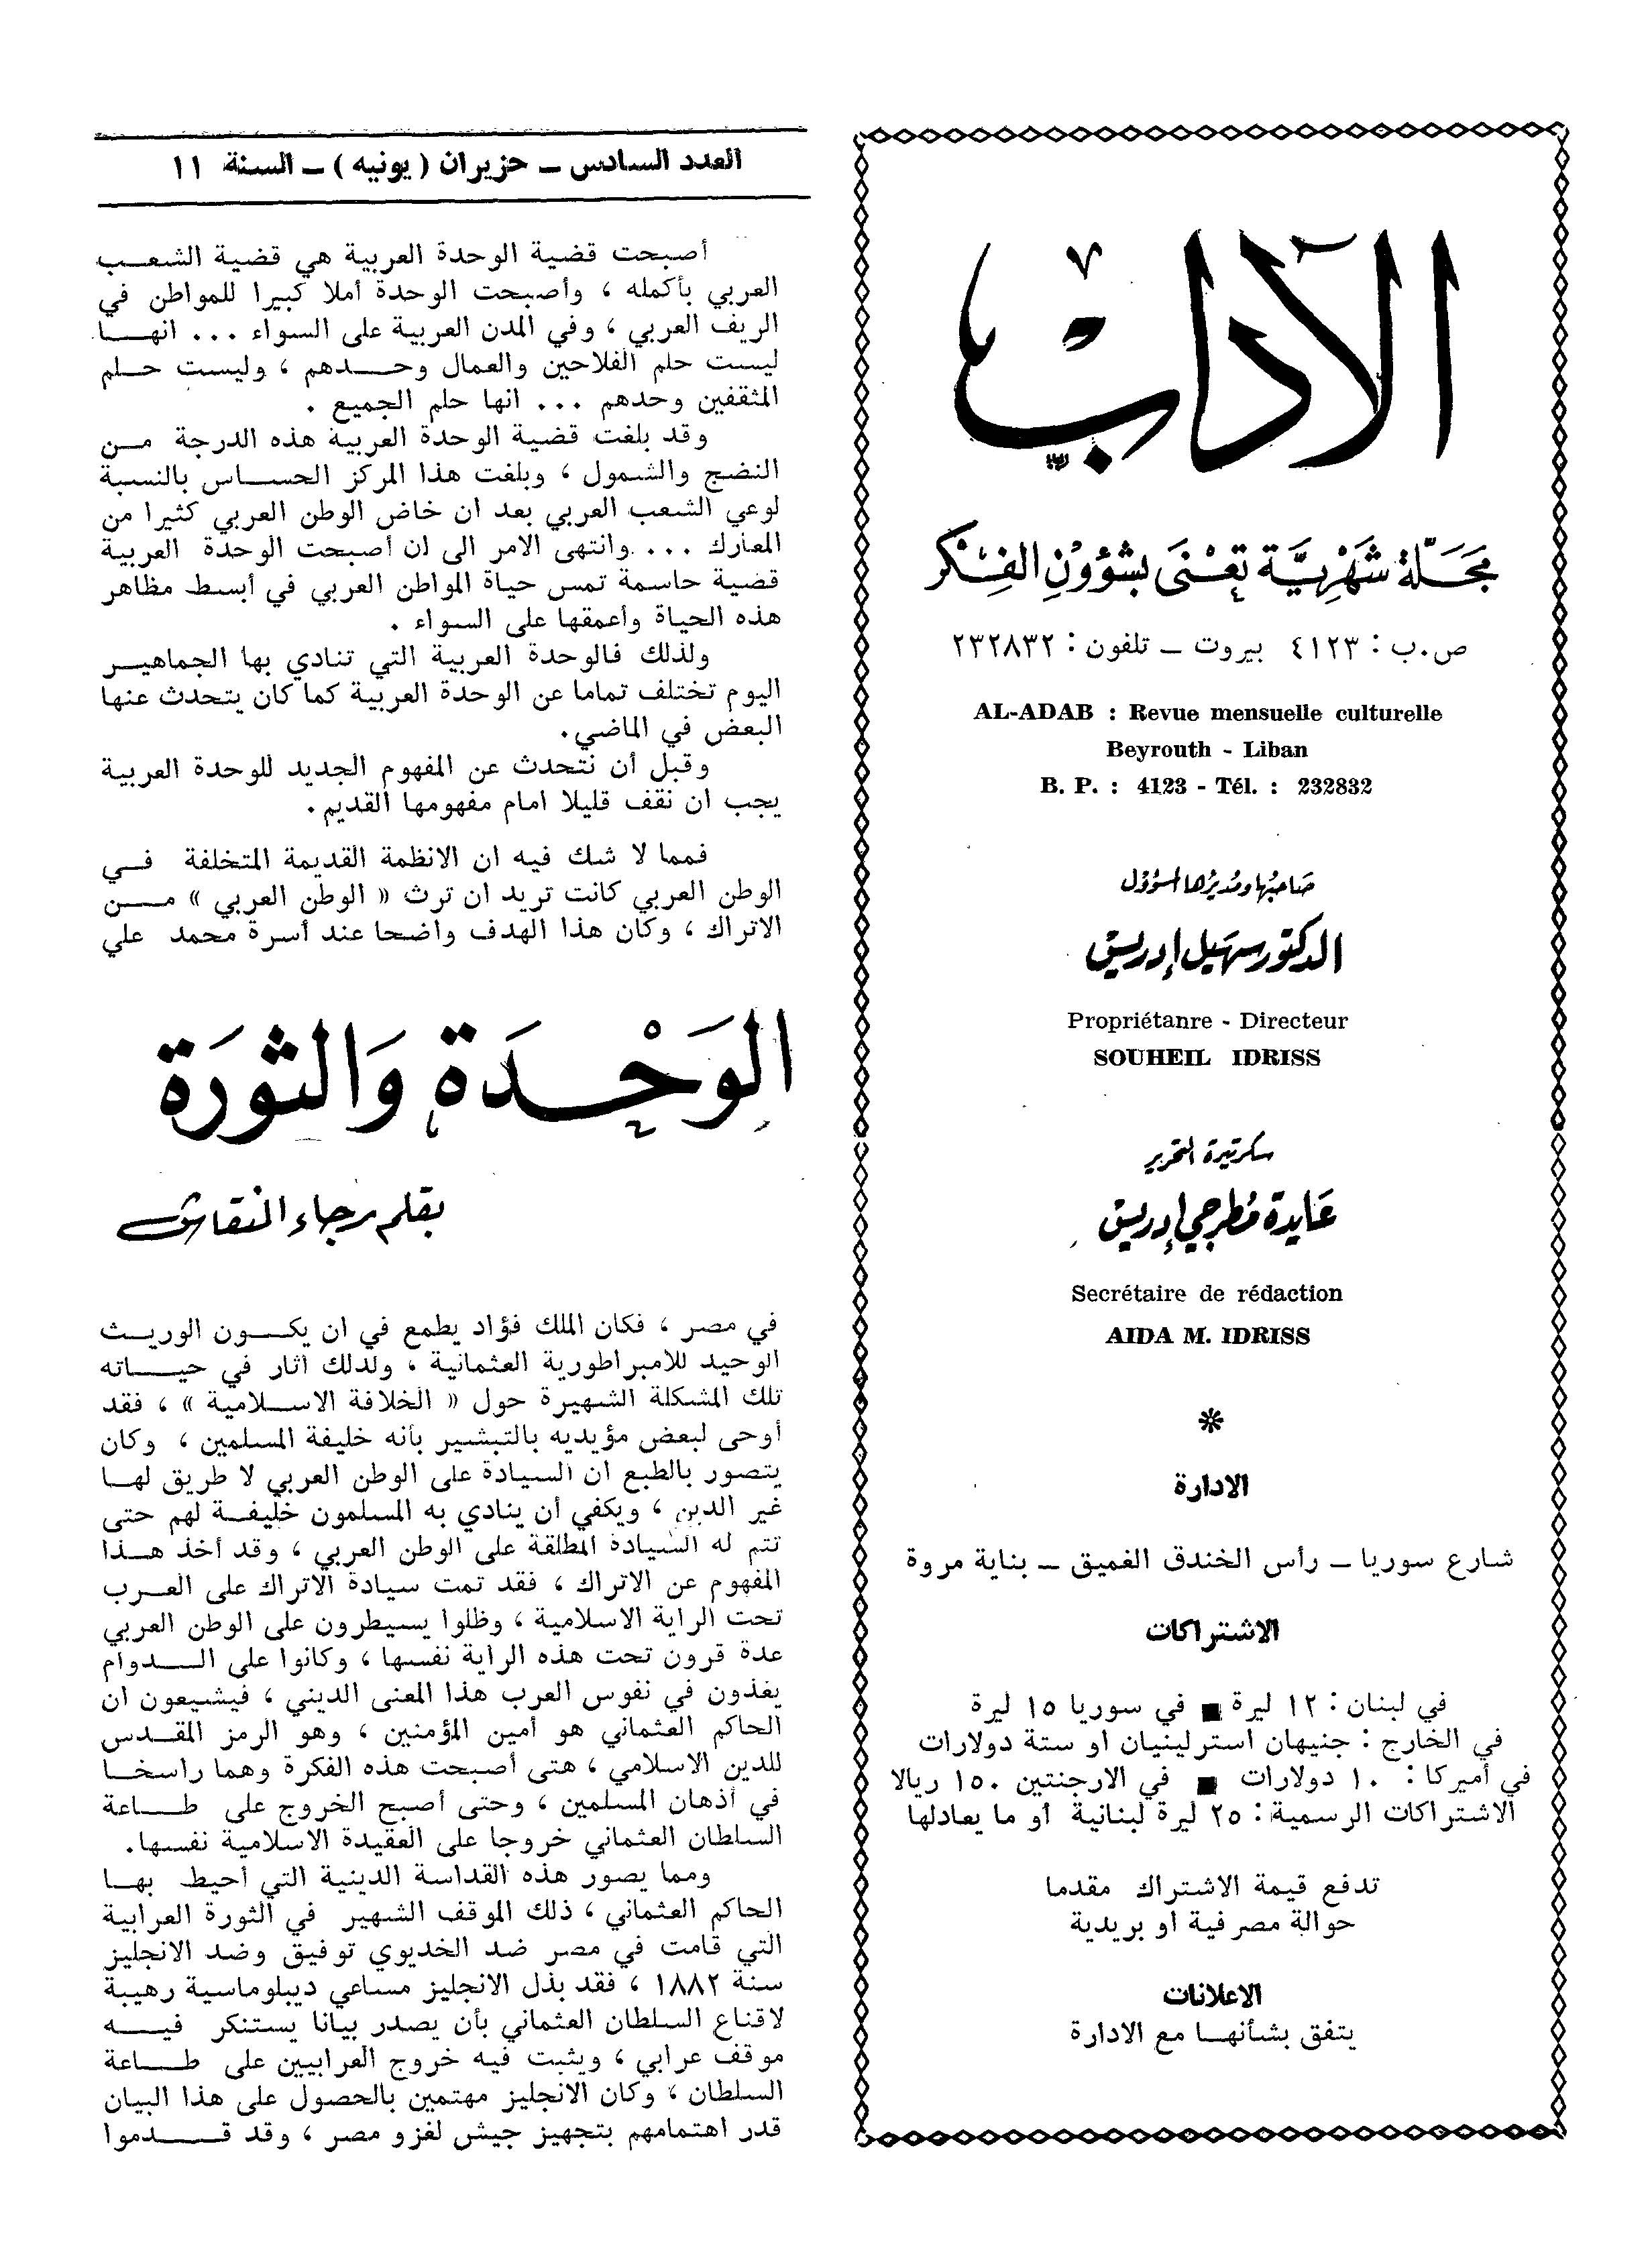 الآداب
مجلة شهرية تعنى بشؤون الفكر
ص.ب : ٤١٢٣ بيروت – تلفون : ٢٣٢٨٣٢
AL-ADAB : Revue mensuelle culturelle
Beyrouth - Liban
B. P. : 4123 - Tél. : 232832
صاحبها ومديرها المسؤول
الدكتور سهيل إدريس
Propriétanre - Directeur
SOUHEIL IDRISS
سكرتيرة التحرير
عايدة مطرجي إدريس
Secrétaire de rédaction
AIDA M. IDRISS
*
الادارة
شارع سوريا – رأس الخندق الغميق – بناية مروة
الاشتراكات
في لبنان : ١٢ ليرة ■ في سوريا ١٥ ليرة
في الخارج : جنيهان استرلينيان او ستة دولارات
في أميركا : ١٠ دولارات ■ في الارجنتين ١٥٠ ريالا
الاشتراكات الرسمية : ٢٥ ليرة لبنانية او ما يعادلها
تدفع قيمة الاشتراك مقدما
حوالة مصرفية او بريدية
الاعلانات
يتفق بشأنها مع الادارة
العدد السادس – حزيران ( يونيه ) – السنة ١١
أصبحت قضية الوحدة العربية هي قضية الشعب
العربي بأكمله ، وأصبحت الوحدة أملا كبيرا للمواطن في
الريف العربي ، وفي المدن العربية على السواء ... انها
ليست حلم الفلاحين والعمال وحدهم ، وليست حلم
المثقفين وحدهم ... انها حلم الجميع .
وقد بلغت قضية الوحدة العربية هذه الدرجة من
النضج والشمول ، وبلغت هذا المركز الحساس بالنسبة
لوعي الشعب العربي بعد ان خاض الوطن العربي كثيرا من
المعارك ... وانتهى الامر الى ان أصبحت الوحدة العربية
قضية حاسمة تمس حياة المواطن العربي في أبسط مظاهر
هذه الحياة وأعمقها على السواء .
ولذلك فالوحدة العربية التي تنادي بها الجماهير
اليوم تختلف تماما عن الوحدة العربية كما كان يتحدث عنها
البعض في الماضي.
وقبل أن نتحدث عن المفهوم الجديد للوحدة العربية
يجب ان نقف قليلا امام مفهومها القديم.
فمما لا شك فيه ان الانظمة القديمة المتخلفة في
الوطن العربي كانت تريد ان ترث « الوطن العربي » من
الاتراك ، وكان هذا الهدف واضحا عند أسرة محمد علي
الوحدة والثورة
بقلم رجاء النقاش
في مصر ، فكان الملك فؤاد يطمع في ان يكون الوريث
الوحيد للامبراطورية العثمانية ، ولذلك اثار في حياته
تلك المشكلة الشهيرة حول « الخلافة الاسلامية » ، فقد
أوحى لبعض مؤيديه بالتبشير بأنه خليفة المسلمين ، وكان
يتصور بالطبع ان السيادة على الوطن العربي لا طريق لها
غير الدين ، ويكفي أن ينادي به المسلمون خليفة لهم حتى
تتم له السيادة المطلقة على الوطن العربي ، وقد أخذ هذا
المفهوم عن الاتراك ، فقد تمت سيادة الاتراك على العرب
تحت الراية الاسلامية ، وظلوا يسيطرون على الوطن العربي
عدة قرون تحت هذه الراية نفسها ، وكانوا على الدوام
يغذون في نفوس العرب هذا المعنى الديني ، فيشيعون ان
الحاكم العثماني هو أمين المؤمنين ، وهو الرمز المقدس
للدين الاسلامي ، هتى أصبحت هذه الفكرة وهما راسخا
في أذهان المسلمين ، وحتى أصبح الخروج على طاعة
السلطان العثماني خروجا على العقيدة الاسلامية نفسها.
ومما يصور هذه القداسة الدينية التي أحيط بها
الحاكم العثماني ، ذلك الموقف الشهير في الثورة العرابية
التي قامت في مصر ضد الخديوي توفيق وضد الانجليز
سنة ١٨٨٢ ، فقد بذل الانجليز مساعي ديبلوماسية رهيبة
لاقناع السلطان العثماني بأن يصدر بيانا يستنكر فيه
موقف عرابي ، ويثبت فيه خروج العرابيين على طاعة
السلطان ، وكان الانجليز مهتمين بالحصول على هذا البيان
قدر اهتمامهم بتجهيز جيش لغزو مصر ، وقد قدموا